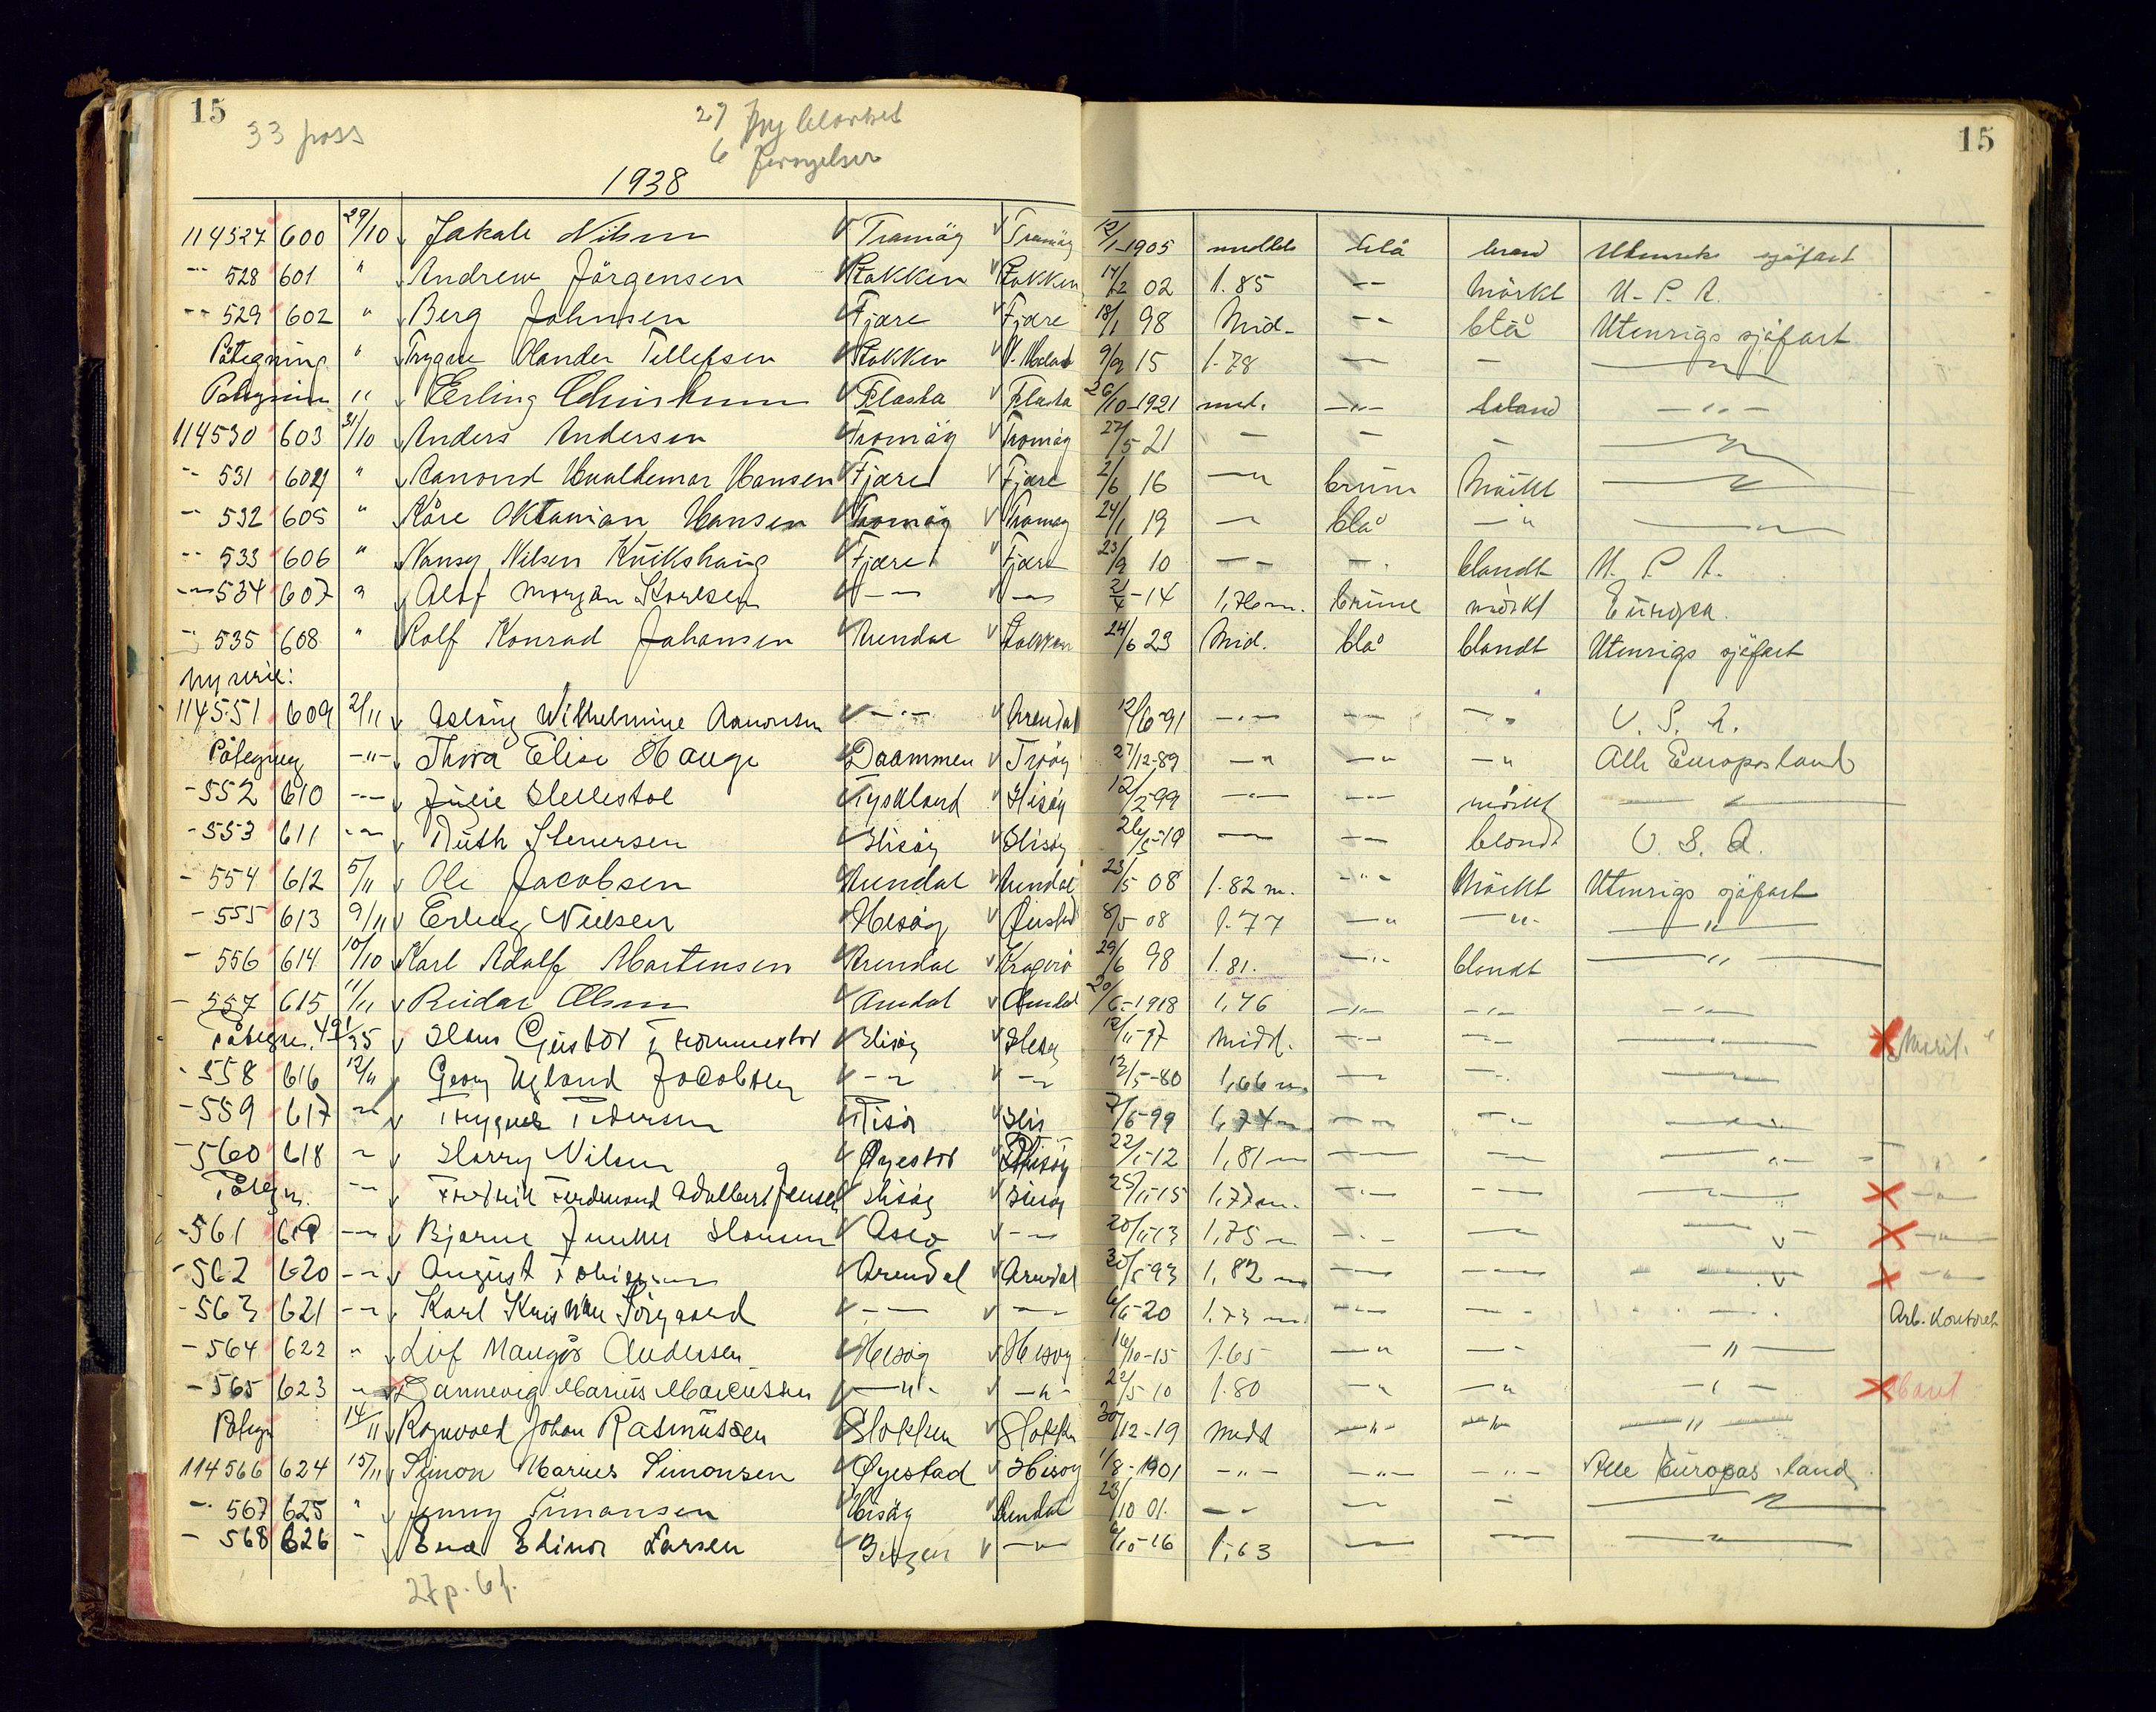 15
33 pass
27 Ny blanket
6 fornyelser
1938
15
114527 600 29/10 Jakob Nilsen Tromöy Tromöy 12/1-1905 middels blå Utenriks sjöfart
-- 528 601 " Andrew Jörgensen Stokken Stokken 14/2 02 1.85 -- Mörkt U.S.A.
-- 529 602 " Berg Johnsen Fjære Fjære 18/1 98 Mid- -- blå Utenrigs sjöfart
Påtegning " Trygve Olander Tellefsen Stokken 9/9 15 1.78 — - —"—
Påtegning " Erling Flosta Flosta 26/10-1921 mid. —"— —"—
114530 603 31/10 Anders Andersen Tromöy Tromöy 27/5 21 - - - —"—
-- 531 604 " Aanond Hvaldemar Hansen Fjære Fjære 2/6 16 —" brune Mörkt —"—
-- 532 605 " Kåre Oktavian Hansen Tromöy Tromöy 24/1 19 — blå —" —"—
-- 533 606 " Nansy Nilsen Fjære Fjære 23/9 10 -- -- blandt U.S.A.
-- 534 607 " Olaf Morgan Karlsen -- — 2/4-14 1,76 m. brune mörkt Europa.
-- 535 608 " Rolf Konrad Johansen Arendal Stokken 24/6 23 Mid. blå blandt Utenrigs sjöfart
Ny serie:
114551 609 2/11 Aslaug Wilhelmine Aanonsen —"— Arendal 12/6-91 —"— -- —" U.S.A.
Påtegning —"— Thora Elise Hauge Drammen Trööy 27/12-89 —" —" —" Alle Europas land
-552 610 --- Julie Hellestöl Tyskland Hisöy 12/2-99 --- --- mörkt —"—
-553 611 -- Ruth Stenersen Hisöy Hisöy -19 — -- blond U.S.A.
- 554 612 5/11 Ole Jacobsen Arendal Arendal 23/5 08 1.82 m. -"- Mörkt Utenrigs sjöfart
- 555 613 9/11 Erling Nielsen Hisöy Öiestad 8/5-08 1.77 —" —"- —"—
- 556 614 10/10 Karl Adolf Mortensen Arendal Kragerö 29/6 98 1.81. —"- blandt —"—
- 557 615 11/11 Reidar Olsen Arendal Arendal 20/6-1918 1,76 —"— —"— —"—
Påtegn. Hans Gustav Hisöy Hisöy 12/11-97 Midd. -- -- —"— X Marit. "
-558 616 12/11 Georg Ugland Jacobsen -- -- 13/5-80 1,66 m. — -- —
-559 617 —" Trygve Pedersen Risör His 7/6-99 1,74 m -- -- —
-560 618 ~ Harry Nilsen Øyestad Hisöy 22/1-12 1,81 m — — —"—
Påtegn. -- Fredrik Ferdinand Adalbert Jensen Hisöy Hisöy 25/11-15 1,77 m. -- -- — X -"-
-561 619 --- Bjarne Junker Hansen Oslo --- 20/11-13 1,75 m -- — — X —"—
-562 620 -- August Tobiassen Arendal Arendal 30/5-93 1,82 m — -- — X -"-
-563 621 -- Karl Kristian Sörgaard --- --- 6/6-20 1.73 m --- --- --- Arb. kontoret
-564 622 " Leif Maugör Andersen Hisöy Hisöy 16/10-15 1.65 —" -- —"—
-565 623 -- Dannevig Marius Marcussen —"- —"- 22/5 10 1.80 —" —" —"—
Påtegn 14/11 Ragnvald Johan Rasmussen Stokken Stokken 30/12-19 Midd —"— —"— —"—
114566 624 15/11 Simon Marius Simonsen Øyestad Hisöy 1/8-1901 —"— —"— —"— Alle Europas land
-" 567 625 " Jenny Simonsen Hisöy Arendal 23/10 01. -- — - —"—
- 568 626 - Eva Elinor Larsen Bergen —"— 6/10-16 1,63 — — —"—
27p. 6f.